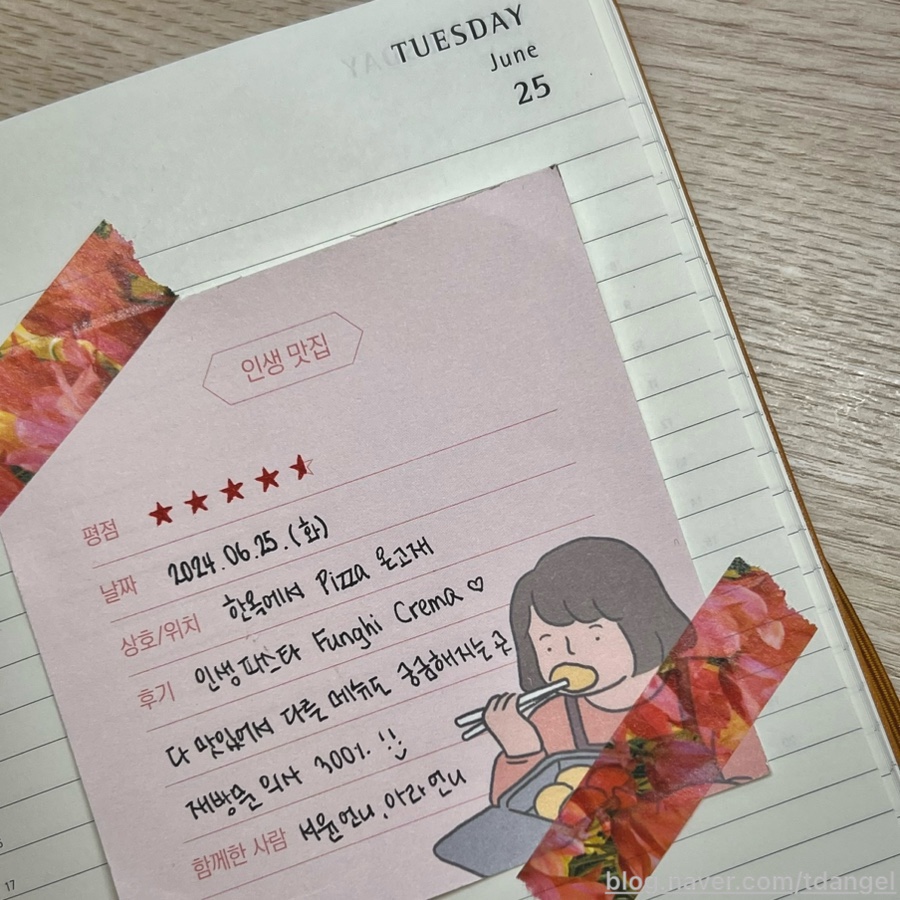 TUESDAY
June
25
인생 맛집
평점 ★★★★⯪
날짜 2024.06.25.(화)
상호/위치 한옥에서 Pizza 온고재
후기 인생파스타 Funghi Crema ♡
다 맛있어서 다른 메뉴도 궁금해지는 곳
재방문 의사 300%
함께한 사람 서윤언니, 아라언니
17
blog.naver.com/tdangel